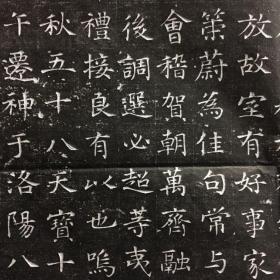 放故室有好事家
策蔚為佳句常与
會稽賀朝萬齊融
後調選必超等夷
禮接良有以也嗚
秋五十八天寶十
午遷神于洛陽八